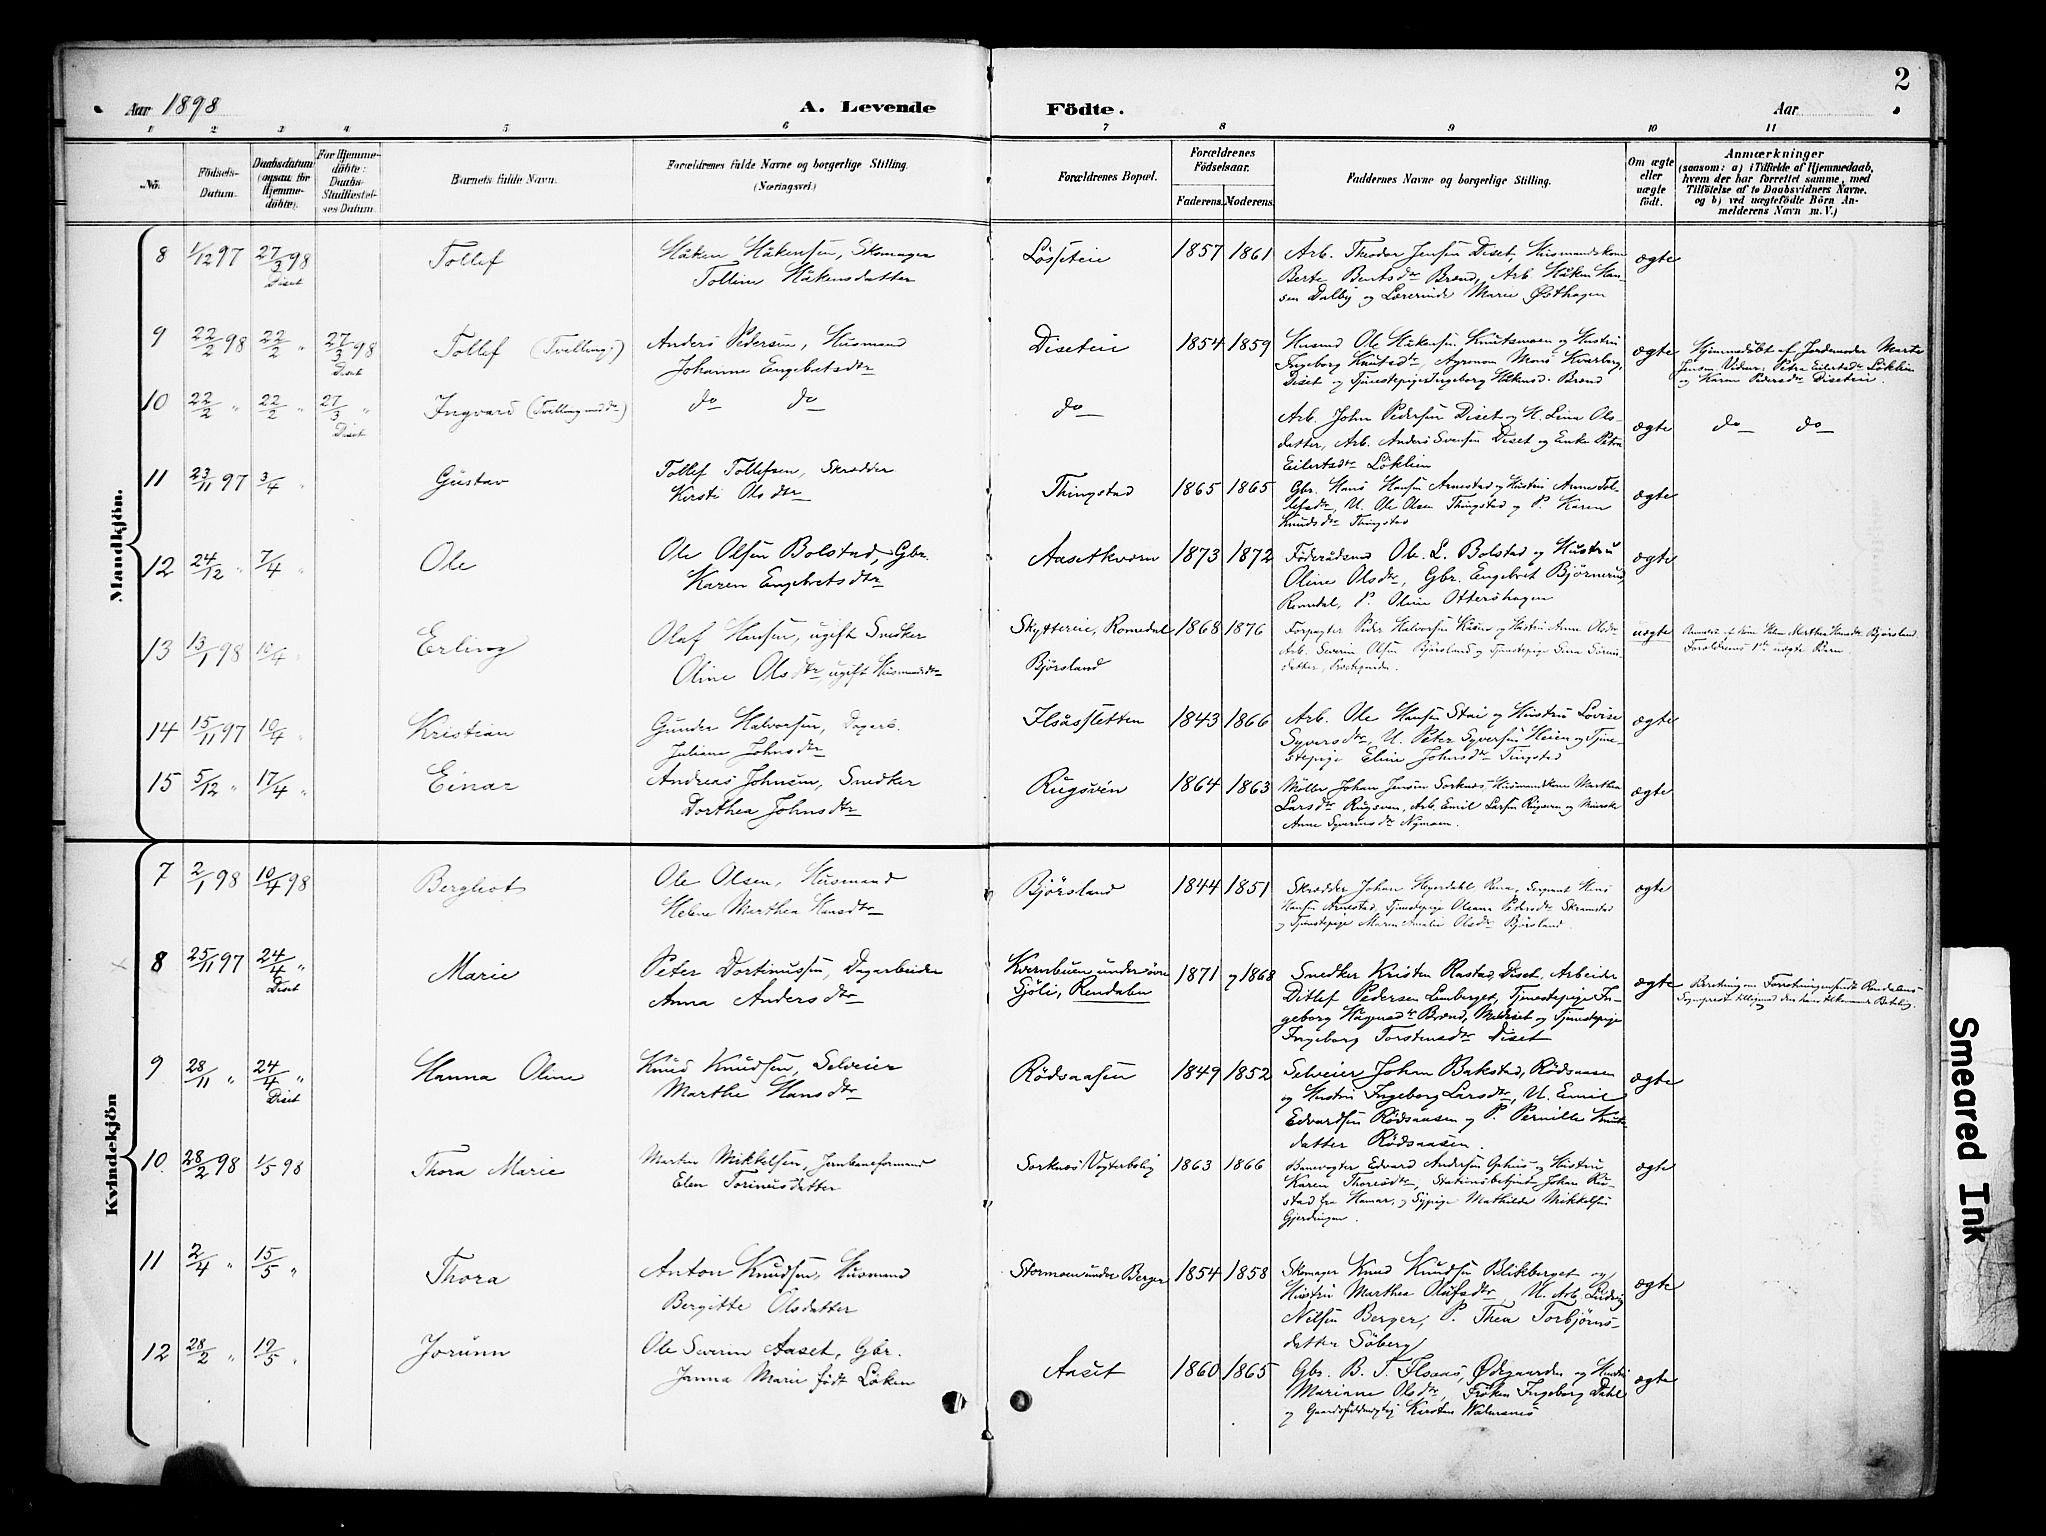 2
Aar 1898
A. Levende Födte.
Aar
1 2 3 4 5 6 7 8 9 10 11
No.
Födsels-Datum.
Daabsdatum (ogsaa for Hjemmedöbte).
For Hjemmedöbte: Daabs-Stadfæstelses Datum.
Barnets fulde Navn.
Forældrenes fulde Navne og borgerlige Stilling.
(Næringsvei.)
Forældrenes Bopæl.
Forældrenes Födselsaar.
Faderens. Moderens.
Faddernes Navne og borgerlige Stilling.
Om ægte eller uægte födt.
Anmærkninger
(saasom: a) i Tilfælde af Hjemmedaab,
hvem der har forrettet samme, med
Tilföielse af to Daabsvidners Navne.
og b) ved uægtefödte Börn An-
melderens Navn m. V.)
Mandkjön.
8 1/12 97 27/3 98 Diset
Tollef
Håken Håkensen, Skomager
Tolline Håkensdatter
Løsseteie
1857 1861
Arb. Theodor Jensen Diset, Husmandskone
Berte Bentsdtr Brænd, Arb. Håken Han-
sen Dalby og Lærerinde Marie Østhagen
ægte
9 22/2 98 22/2 " 27/3 98 Diset
Tollef (Tvilling:)
Anders Pedersen, Husmand
Johanne Engebretsdtr
Diseteie
1854 1859
Husmd Ole Håkensen Knutsmoen og Hustru
Ingeborg Knutsdtr, Agronom Mons Kvarberg,
Diset og Tjenestepige Ingeborg Håkensd. Brænd
ægte
Hjemmedöbt af Jordemoder Marte
Jensen. Vidner: Petra Eilertsdtr Löklien
og Karen Pedersdtr Diseteie.
10 22/2 " 22/2 " 27/3 " Diset
Ingvard (Tvilling med do)
do do
do
Arb. John Pedersen Diset og H. Lina Ols-
datter, Arb. Anders Svensen Diset og Enke Petra
Eilertsdtr Löklien
ægte
do do
11 23/11 97 3/4 "
Gustav
Tollef Tollefsen, Skrædder
Kirsti Olsdtr
Thingstad
1865 1865
Gbr. Hans Hansen Arnestad og Hustru Anne Tol-
lefsdtr, U. Ole Olsen Thingstad og P. Karen
Knudsdtr Thingstad
ægte
12 24/12 " 7/4 "
Ole
Ole Olsen Bolstad, Gbr.
Karen Engebretsdtr
Aasetkværn
1873 1872
Föderådsmd Ole L. Bolstad og Hustru
Oline Olsdtr, Gbr. Engebret Björnerud,
Romedal, P. Oline Ottershagen
ægte
13 13/1 98 10/4 "
Erling
Olaf Hansen, ugift Snedker
Oline Olsdtr, ugift Husmandsdtr
Skyttereie, Romedal
Björsland
1868 1876
Forpagter Peder Halvorsen og Hustru Anne Olsdtr
Arb. Severin Olsen Björsland og Tjenestepige
uægte
Forældrenes 1ste uægte Barn.
14 15/11 97 10/4 "
Kristian
Gunder Halvorsen, Dagarb.
Juliane Johnsdtr
Ilsåssletten
1843 1866
Arb. Ole Hansen Stai og Hustru Lovise
Syversdtr, U. Peter Syversen Heien og Tjene-
stepige Eline Johnsdtr Tingstad
ægte
15 5/12 " 17/4 "
Einar
Andreas Johnsen, Snedker
Dorthea Johnsdtr
Rugsvén
1864 1863
Möller Johan Jensen Sorknes, Husmandskone Marthea
Larsdtr Rugsven, Arb. Emil Larsen Rugsven og
Anne Syverinsdtr Nymoen.
ægte
Kvindekjön
7 2/1 98 10/4 98
Bergliot
Ole Olsen, Husmand
Helene Marthea Hansdtr
Björsland
1844 1851
Skrædder Johan Heyerdahl, Sergeant Hans
Hansen Arnestad, Tjenestepige Oleana Pedersdtr Skramstad
og Tjenestepige Maren Amalie Olsdtr Björsland.
ægte
8 25/11 97 24/4 " Diset
Marie
Peter Dortinussen, Dagarbeider
Anna Andersdtr
Kvernbuen under övre
Sjöli, Rendalen
1871 og 1868
Snedker Kristen Rastad, Diset, Arbeider
Ditlef Pedersen Lemberget, Tjenestepige In-
geborg Hågensdtr Brænd, og Tjenestepige
Ingeborg Torstensdtr Diset
ægte
Beretning om Forretningen sendt Rendalens
Sogneprest tilligemed den ham tilkommende Betaling.
9 28/11 " 24/4 " Diset
Hanna Oline
Knud Knudsen, Selveier
Marthe Hansdtr
Rödsaasen
1849 1852
Selveier Johan Bakstad, Rödsaasen
og Hustru Ingeborg Larsdtr, U. Emil
Edvardsen Rödsaasen og P. Pernille Knuts-
datter Rödsaasen.
ægte
10 28/2 98 1/5 98
Thora Marie
Martin Mikkelsen, Jernbaneformand
Elen Torinusdatter
Sorknes Vogterbolig
1863 1866
Banevogter Edvard Andersen Gehus og Hustru
Karen Thoresdtr, Stationsbetjent Johan Ru-
stad fra Hamar, og Sypige Mathilde Mikkelsen
Gjerdingen.
ægte
11 2/4 " 15/5 "
Thora
Anton Knudsen, Husmand
Bergitte Olsdatter
Stormoen under Berger
1854 1858
Skomager Knud Knudsen Blikberget og
Hustru Marthea Olufsdtr, U. Arb. Ludvig
Nilsen Berger, P. Thea Torbjörns-
datter Söberg
ægte
12 28/2 " 19/5 "
Jorunn
Ole Sverin Aaset, Gbr.
Janna Marie födt Löken
Aaset
1860 1865
Gbr. B. T. Ilsaas, Ødegaarden og Hustru
Mariane Olsdtr, Fröken Ingeborg Dahl
og Gaardsfuldmægtig Kirsten Walmsnes
ægte
Smeared Ink